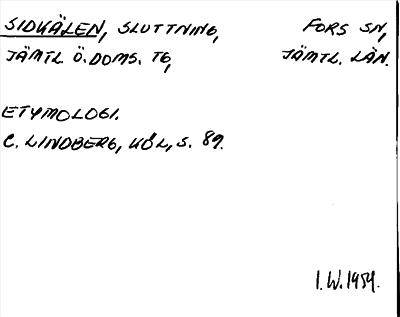 SIDKÄLEN, SLUTTNING, FORS SN,
JÄMTL Ö. DOMS. TG, JÄMTL. LÄN.
ETYMOLOGI.
C. LINDBERG, KÖL, S. 89.
I.W. 1954.